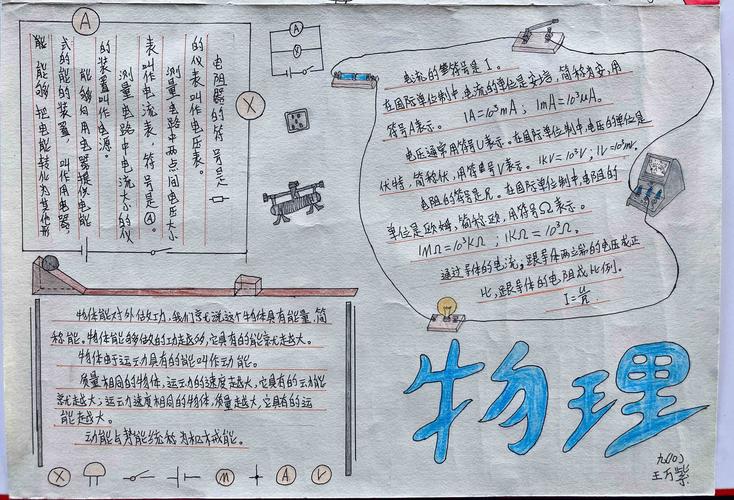 A
X
电阻器的符号是
的仪表叫作电压表。
测量电路中两点间电压大小
表叫作电流表，符号是Ⓐ。
测量电路中电流大小的仪
的装置叫作电源。
能够向用电器提供电能
式的能的装置，叫作用电器，
能够把电能转化为其他形
A
V
电流的符号是I。
在国际单位制中，电流的单位是安培，简称为安，用
符号A表示。 1A=10³mA； 1mA=10³μA。
电压通常用符号U表示。在国际单位制中，电压的单位是
伏特，简称伏，用符号V表示。1KV=10³V；1V=10³mV。
电阻的符号是R。在国际单位制中，电阻的
单位是欧姆，简称欧，用符号Ω表示。
1MΩ=10³KΩ ； 1KΩ=10³Ω。
通过导体的电流，跟导体两端的电压成正
比，跟导体的电阻成反比例。
I=U/R.
物体能对外做功，我们就说这个物体具有能量，简
称能。物体能够做的功越多，它具有的能就越大。
物体由于运动具有的能叫作动能。
质量相同的物体，运动的速度越大，它具有的动能
就越大；运动速度相同的物体，质量越大，它具有的动
能越大。
动能与势能统称为机械能。
X
M
A
V
物理